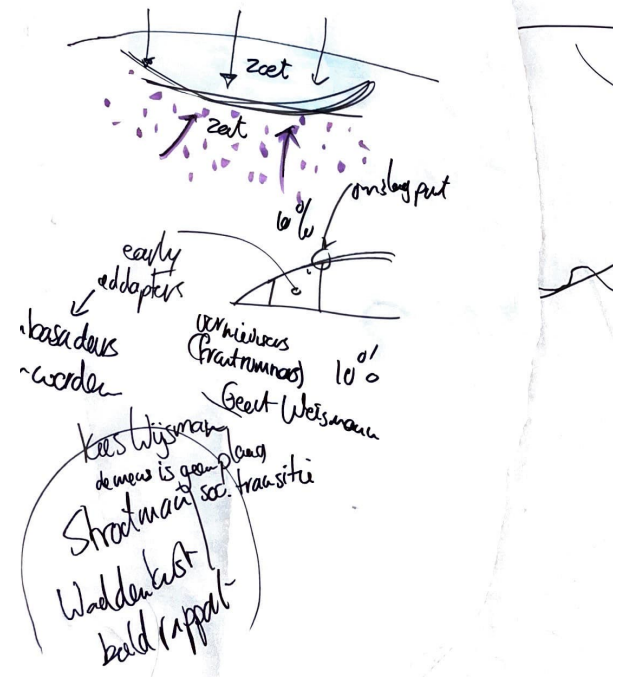 zoet
zout
omslagpunt
10%
early
addapters
worden
vernieuwers
(frontrunners)
10%
Geert Weismann
Kees Wijsman
de mens is geen plaag
soc. transitie
Strootman
Waddenkust
bold rapport